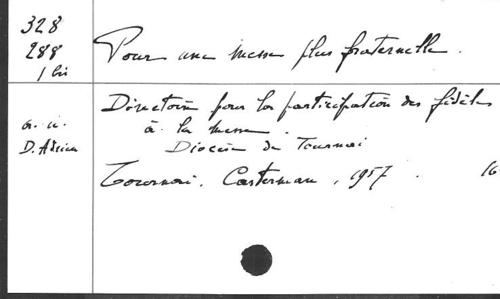 328
288
1 bis
Pour une messe plus fraternelle.
Directoire pour la participation des fidèles
à la messe.
Diocèse de Tournai
D. Adrien
Tournai. Casterman, 1957
16